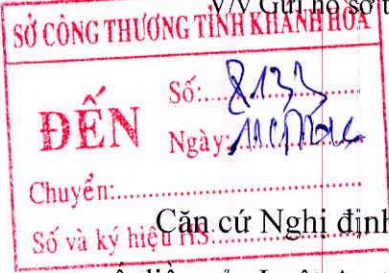 V/v Gửi hồ sơ
SỞ CÔNG THƯƠNG TỈNH KHÁNH HÒA
ĐẾN
Số: 8133
Ngày:
Chuyển:
Số và ký hiệu HS:
Căn cứ Nghị định